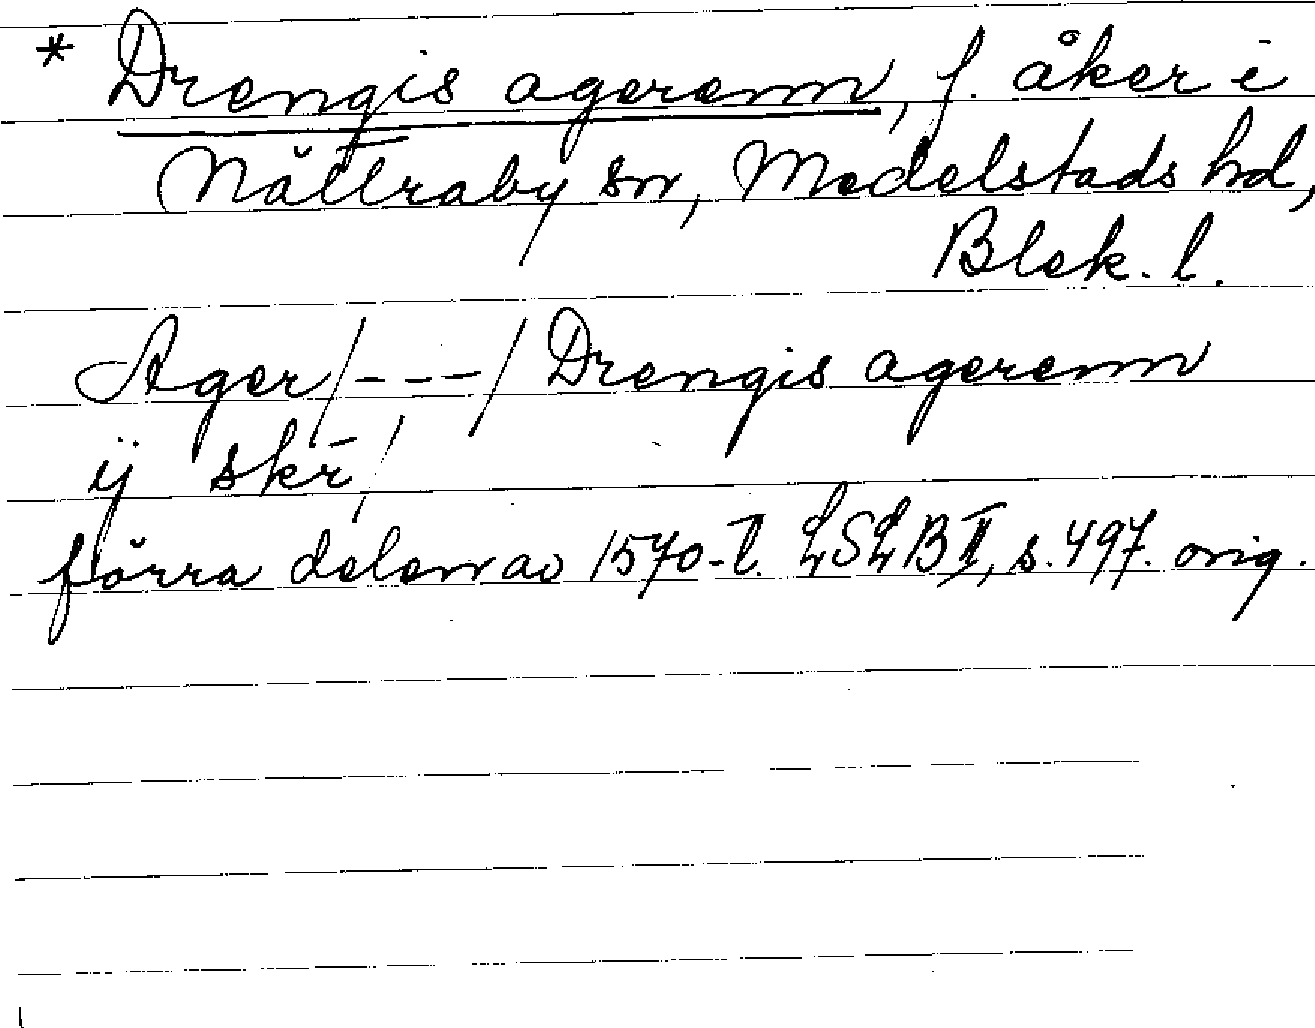 * Drengis agerenn, f. åker i
Nättraby sn, Medelstads hd,
Blek. l.
Ager/---/Drengis agerenn
ij skr̄/
förra delen av 1570-t. LSLB II, s. 497. orig.